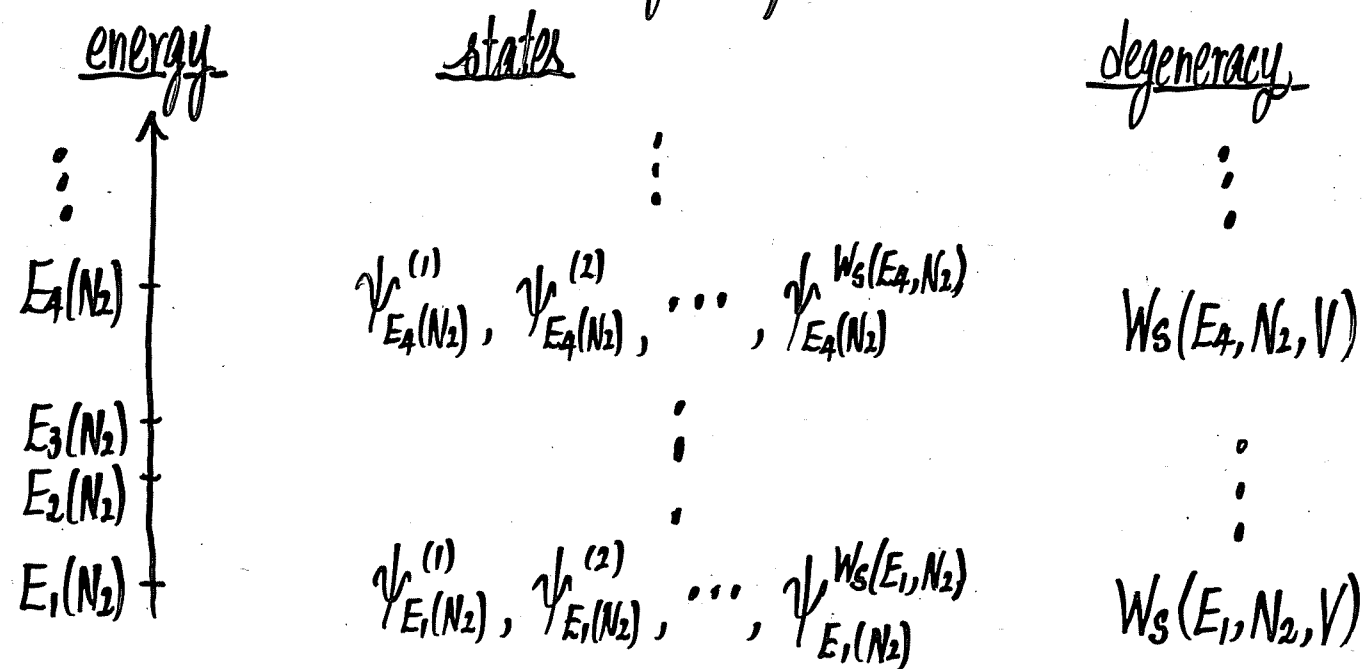 energy states degeneracy
⋮ ⋮ ⋮
E₄(N₂) ψ_{E₄(N₂)}^{(1)}, ψ_{E₄(N₂)}^{(2)}, ⋯, ψ_{E₄(N₂)}^{W_S(E₄,N₂)} W_S(E₄,N₂,V)
E₃(N₂) ⋮ ⋮
E₂(N₂)
E₁(N₂) ψ_{E₁(N₂)}^{(1)}, ψ_{E₁(N₂)}^{(2)}, ⋯, ψ_{E₁(N₂)}^{W_S(E₁,N₂)} W_S(E₁,N₂,V)